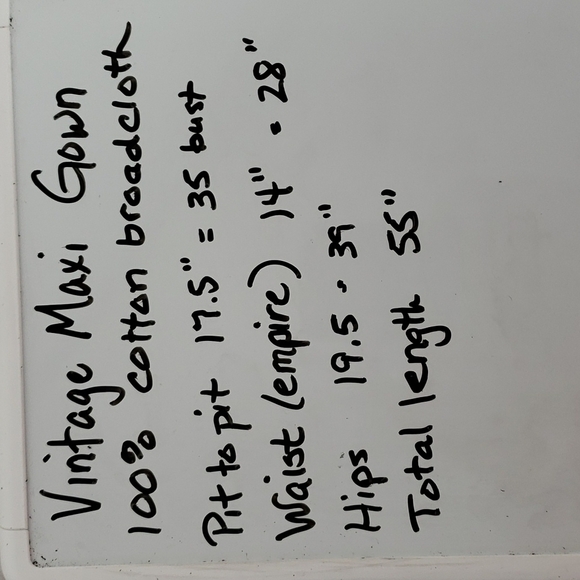 Vintage Maxi Gown
100% cotton broadcloth
Pit to pit 17.5" = 35 bust
Waist (empire) 14" = 28"
Hips 19.5 - 39"
Total length 55"